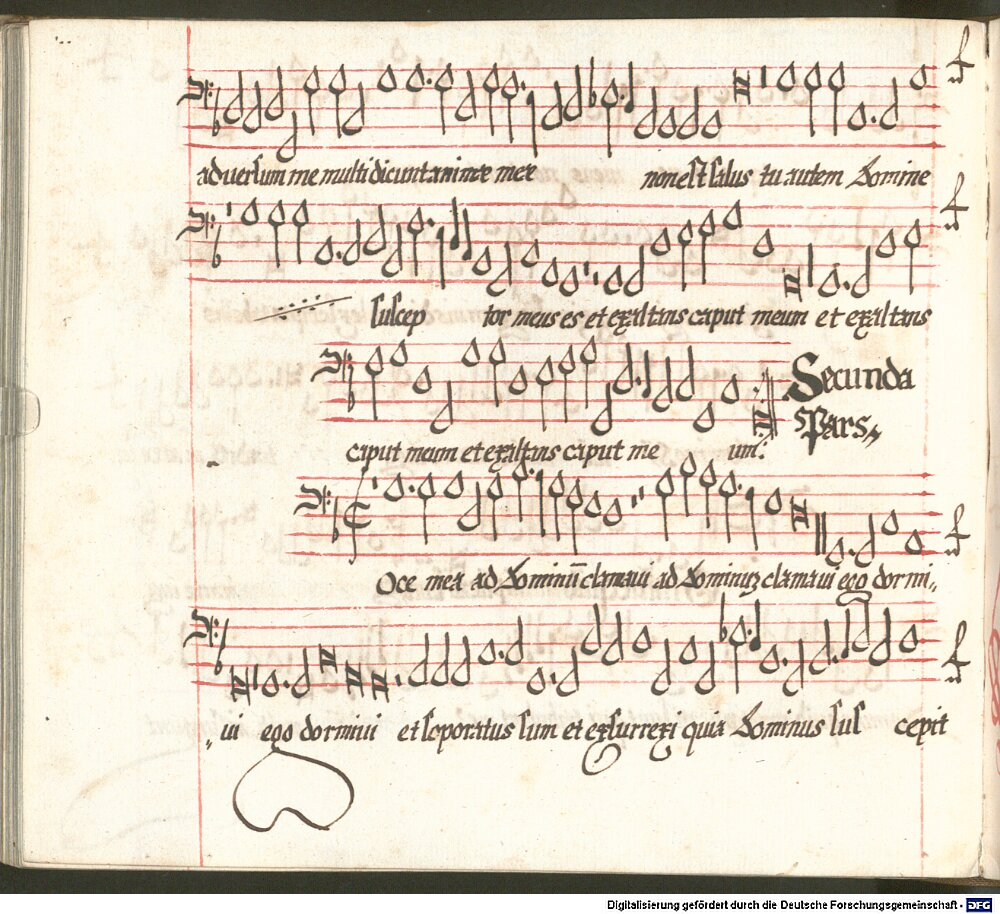 adversum me multi dicunt animæ meæ non est salus tu autem Domine
suscep tor meus es et exaltans caput meum et exaltans
caput meum et exaltans caput me um:
Secunda
Pars
Oce mea ad Dominū clamavi ad Dominuz clamavi ego dormi„
„ vi ego dormivi et soporatus sum et exsurrexi quia Dominus sus cepit
Digitalisierung gefördert durch die Deutsche Forschungsgemeinschaft - DFG